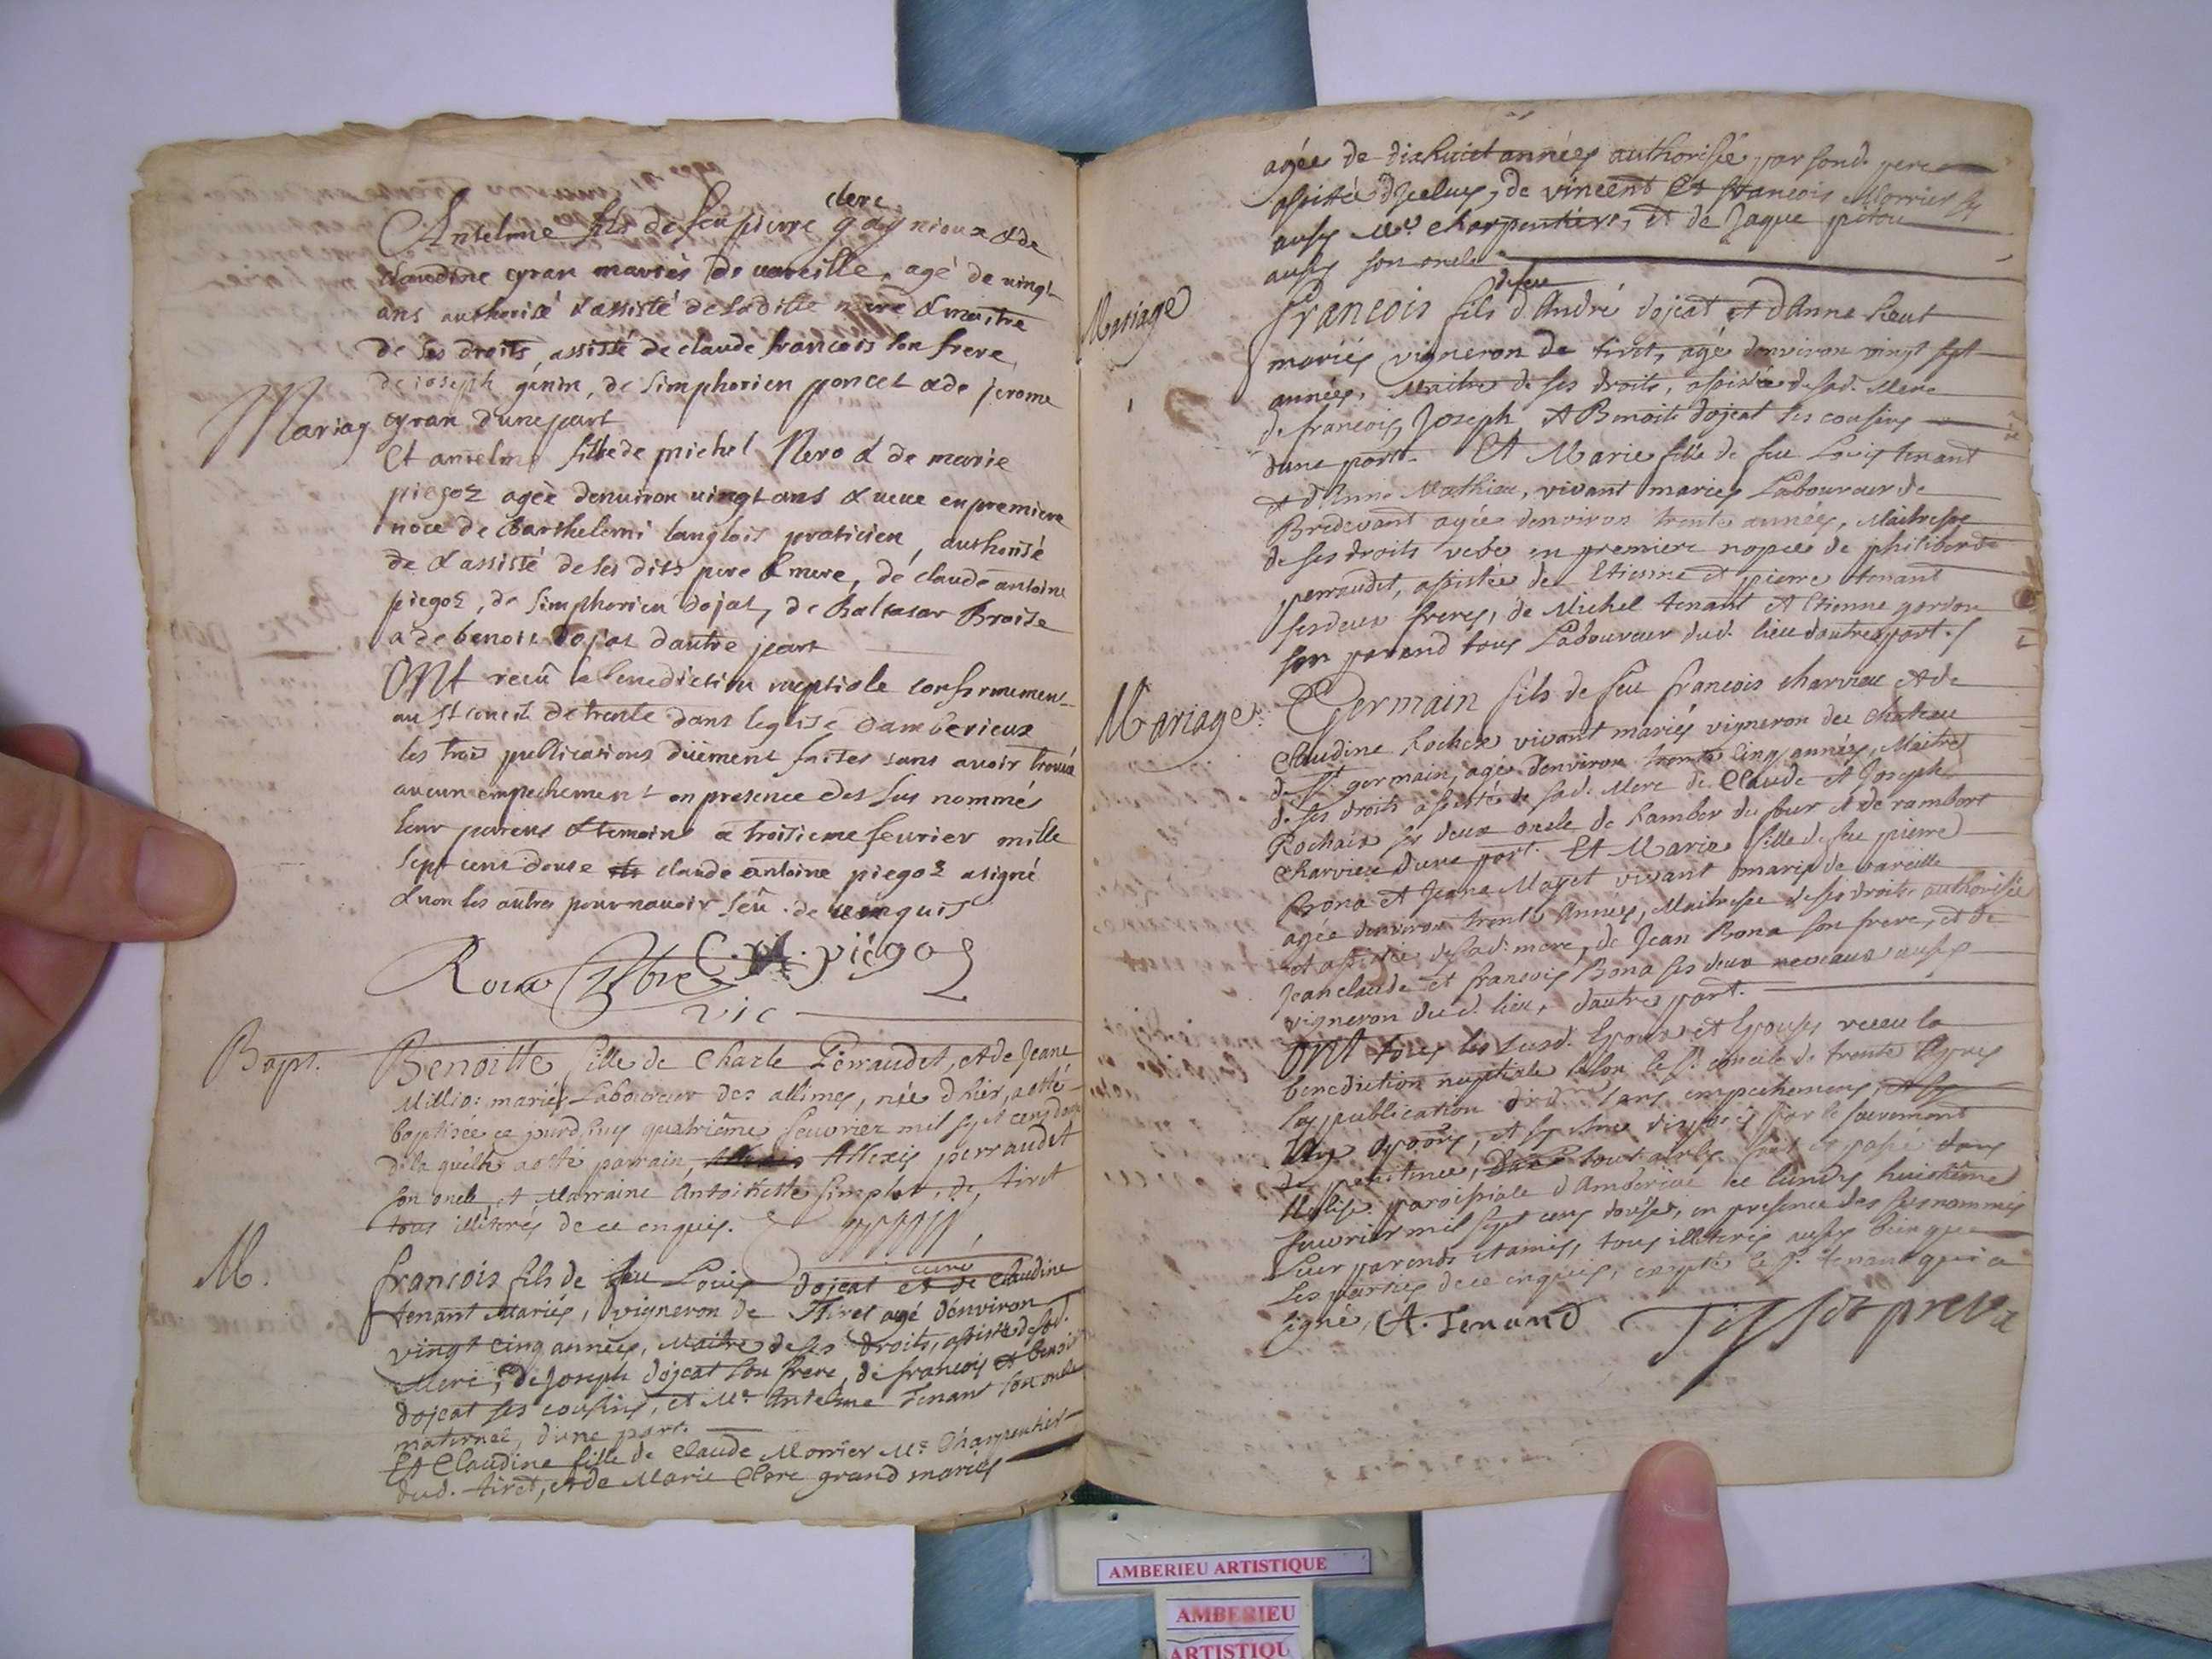 clerc
Anselme fils de feu pierre gagnioux & de
claudine gran mariés de vareille, agé de vingt
ans authorisé & assisté de saditte mere & maitre
de ses droits, assisté de claude francois son frere
de joseph génin, de simphorien poncet & de jerome
Mariag
gran d'une part
Et antelme fille de michel Nero & de marie
piegoz agée denviron vingt ans & veve en premiere
noce de Barthelemi langlois praticien, authorisé
de & assisté de ses dits pere & mere, de claude antoine
piegoz, de simphorien dojat, de Baltasar Braise
& de benoit dojat d'autre part
Ont reçû la benediction nuptiale conformement
au st concil de trente dans leglise damberieux
les trois publications düement faites sans avoir trouvé
aucun empechement en presence des sus nommés
leur parens & temoins a troisieme fevrier mille
sept cent douse claude antoine piegoz a signé
& non les autres pour n'avoir sçû de ce enquis
Roux ptbre C. A. piégoz
vic
Bapt.
Benoitte fille de Charle Perraudet, et de Jeane
Millio: mariés Laboureur des allimes, née d'hier, a esté
baptisee ce jourd'huy quatriême feuvrier mil sept cens douze
de la quelle a esté parrain, Allexis perraudet
son oncle, et Marraine Antoinette simplet, de tiret
tous illiterés de ce enquis.
curé
M.
francois fils de feu Louis dojeat et de Claudine
tenant Mariés, vigneron de Tiret agé d'environ
vingt cinq années, Maitre de ses droits, assisté de sad.
Mere, de Joseph dojeat son frere, de francois et benoit
dojeat ses cousins, et Mre Antelme Tenant son oncle
maternel, d'une part.
Et Claudine fille de Claude Morrier Me Charpentier
dud. tiret, et de Marie Clerc grand mariés
agée de dixhuict années authorisée par sond. pere
assistée d'icelluy, de vincent et francois Morrier
aussy Mre charpentiers, et de Jaque pitou
aussy son oncle
de feu
Mariage
francois fils d'André dojeat et d'Anne heut
mariés vigneron de tiret, agé denviron vingt sept
années, Maitre de ses droits, assistée de sad. Mere
de francois, Joseph, et Benoit dojeat ses cousins
dune part. Et Marie fille de feu Louis tenant
et d'Anne Mathieu, vivant mariés Laboureur de
Bredevant agée denviron trente années, Maitresse
de ses droits vefve en premiere nopces de philiberde
perraudet, assistée de Etienne et pierre tenant
ses deux freres, de Michel tenant et Etienne gorion
son parend tous Laboureur dud. lieu dautre part.
Mariage.
Germain fils de feu francois charvieu et de
Claudine Rochex vivant mariés vigneron du chateau
de St germain, agé denviron trente cinq années, Maitre
de ses droits assisté de sad. Mere de Claude et Joseph
Rochaix ses deux oncle de Rambert du four et de rambert
charvieu d'une part. Et Marie fille de feu pierre
Bona et Jeane Mayet vivant mariés de vareille
agée denviron trente années, Maitresse de ses droits authorisée
et assistée de sad. mere, de Jean Bona son frere, et de
Jean claude et francois Bona ses deux neveaux aussy
vigneron dud. lieu, dautre part.
Ont tous les susd. Epoux et Epouses receu la
benediction nuptiale selon le St concile de trente apres
les publication sans empechemens,
et s'estre disposés par le sacrement
de penitence, tout fait et passé dans
l'Eglise paroissiale d'Amberiux ce lundy huictiême
feuvrier mil sept cens douse, en presence des susnommés
Leur parends et amis, tous illiterés aussy bien que
les parties de ce enquis, excepté le Sr tenand qui a
signé, A. Tenand Tissot prevt
AMBERIEU ARTISTIQUE
AMBERIEU
ARTISTIQU